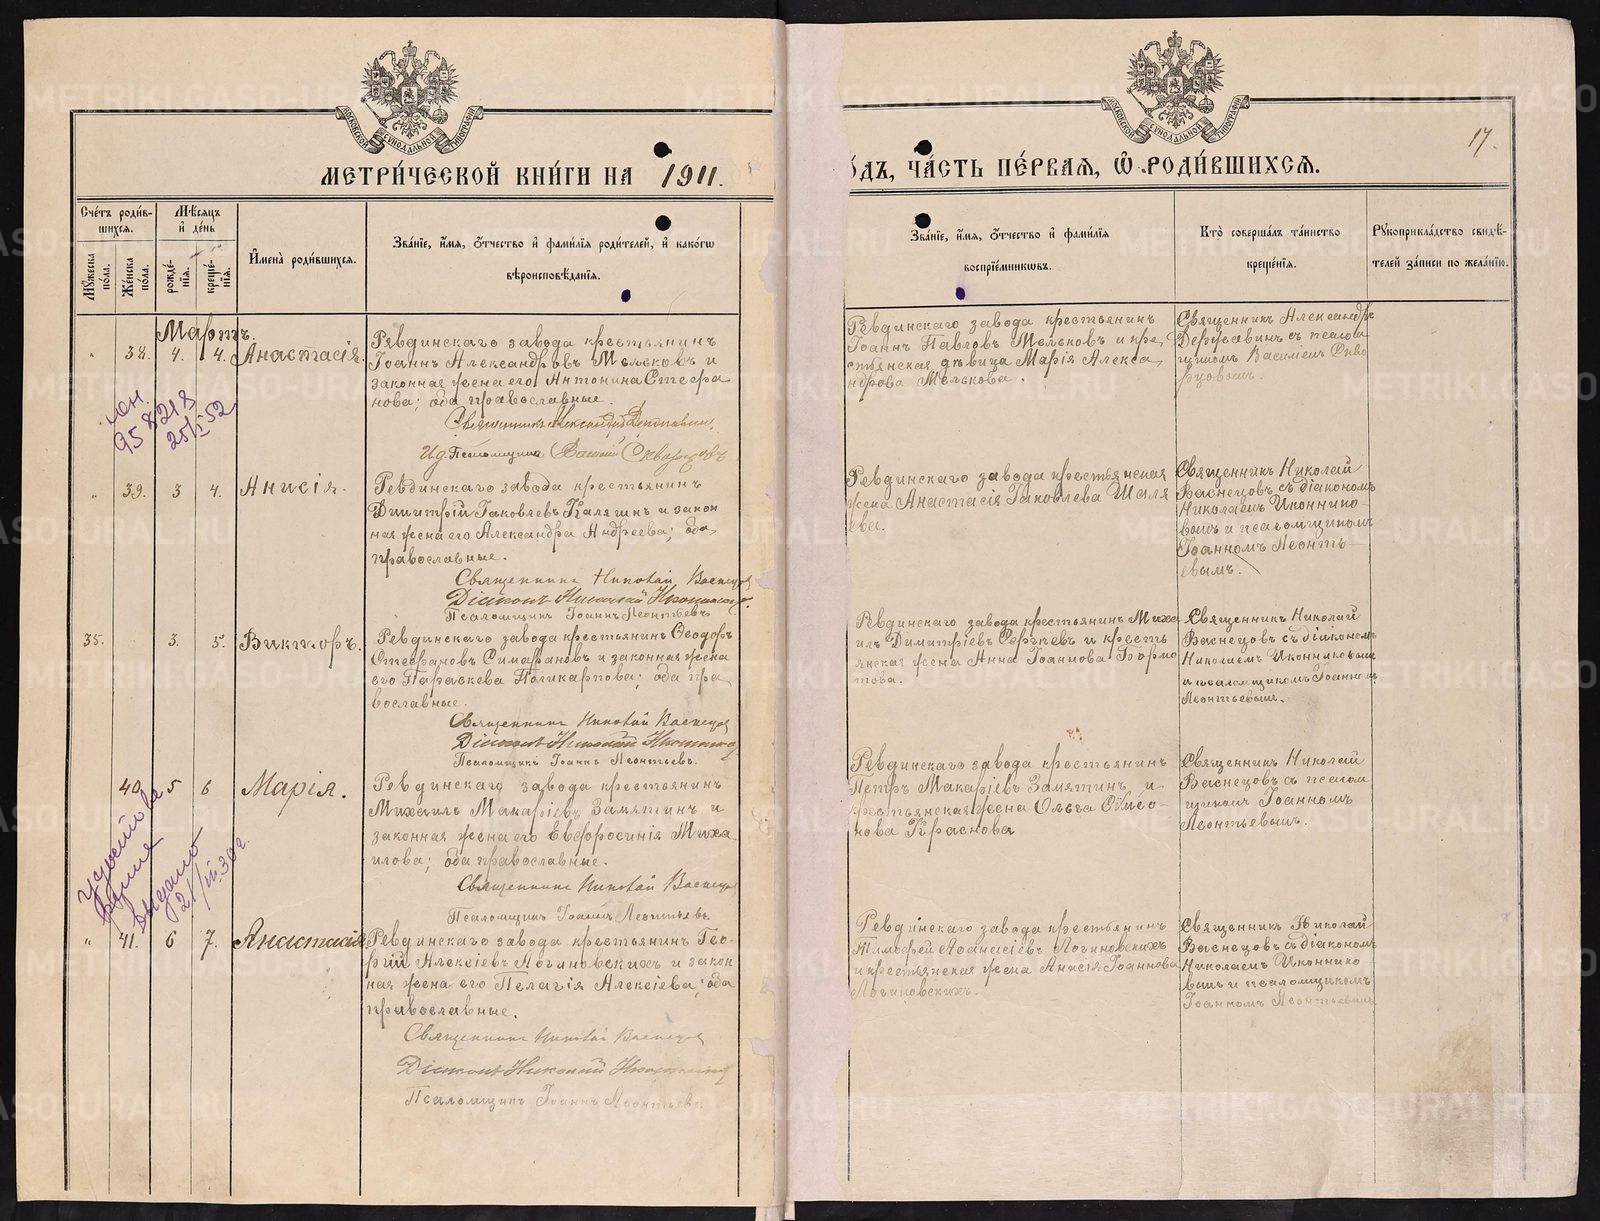 МЕТРИ́ЧЕСКОЙ КНИ́ГИ НА 1911.
ОДЪ, ЧА́СТЬ ПЕ́РВАЯ, Ѿ РОДИ́ВШИХСЯ.
17.
МОСКОВСКОЙ СУНОДАЛЬНОЙ ТИПОГРАФІИ
МОСКОВСКОЙ СУНОДАЛЬНОЙ ТИПОГРАФІИ
Сче́тъ роди́в-
шихся.
Мꙋ́жеска по́ла.
Же́нска по́ла.
Мѣ́сяцъ
и҆ де́нь
рожде́-
нія.
креще́-
нія.
И҆мена̀ роди́вшихся.
Зва́ніе, и҆́мя, ѻ҆́тчество и҆ фами́лія роди́телей, и҆ како́гѡ
вѣроисповѣ́данія.
Зва́ніе, и҆́мя, ѻ҆́тчество и҆ фами́лія
воспріе́мникѡвъ.
Кто̀ соверша́лъ та́инство
креще́нія.
Рꙋкоприкла́дство свидѣ́-
телей за́писи по жела́нію.
Мартъ.
" 38. 4. 4. Анастасія.
Ревдинскаго завода крестьянинъ
Іоаннъ Александровъ Мельковъ и
законная жена его Антонина Стефа
нова; оба православные.
Священникъ Александръ Державинъ
И.д. Псаломщика Василій Скворцовъ
Ревдинскаго завода крестьянинъ
Іоаннъ Павловъ Мельковъ и кре,
стьянская дѣвица Марія Алекса,
ндрова Мелькова.
Священникъ Александръ
Державинъ съ псалом
щикомъ Василіем Скво
рцовымъ.
25/I 52
" 39. 3 4. Анисія.
Ревдинскаго завода крестьянинъ
Димитрій Іаковлевъ Калягинъ и закон
ная жена его Александра Андреева; оба
православные.
Священникъ Николай Васнецов
Діаконъ Николай Иконниковъ.
Псаломщикъ Іоаннъ Леонтьевъ
Ревдинскаго завода крестьянская
жена Анастасія Іаковлева Шаля
ева.
Священникъ Николай
Васнецовъ съ діакономъ
Николаемъ Иконнико-
вымъ и псаломщикомъ
Іоанномъ Леонть-
евымъ.
35. 3. 5. Викторъ.
Ревдинскаго завода крестьянинъ Ѳеодоръ
Стефановъ Симафановъ и законная жена
его Параскева Поликарпова; оба пра
вославные.
Священникъ Николай Васнецов
Діаконъ Николай Иконников
Псаломщикъ Іоаннъ Леонтьевъ.
Ревдинскаго завода крестьянинъ Миха
илъ Димитріевъ Сергѣевъ и кресть
янская жена Анна Іоаннова Бормо
това.
Священникъ Николай
Васнецовъ съ діакономъ
Николаемъ Иконниковымъ
и псаломщикомъ Іоанномъ
Леонтьевымъ.
40. 5 6 Марія.
Ревдинскаго завода крестьянинъ
Михаилъ Макаріевъ Замятинъ и
законная жена его Евфросинія Миха
илова; оба православные.
Священникъ Николай Васнецов
Псаломщикъ Іоаннъ Леонтьевъ.
Ревдинскаго завода крестьянинъ
Петръ Макаріевъ Замятинъ и
крестьянская жена Ольга Симео-
нова Краснова
Священникъ Николай
Васнецовъ съ псалом
щикомъ Іоанномъ
Леонтьевымъ.
выдано
21/III 36 г.
" 41. 6 7. Анастасія
Ревдинскаго завода крестьянинъ Гео-
ргій Алексіевъ Логиновскихъ и закон
ная жена его Пелагія Алексіева; оба
православные.
Священникъ Николай Васнецов
Діаконъ Николай Иконников
Псаломщикъ Іоаннъ Леонтьевъ
Ревдинскаго завода крестьянинъ
Тимофей Аѳанасіевъ Логиновскихъ
и крестьянская жена Анисія Іоаннова
Логиновскихъ.
Священникъ Николай
Васнецовъ съ діакономъ
Николаемъ Иконнико
вымъ и псаломщикомъ
Іоанномъ Леонтьевымъ
METRIKI.GASO-URAL.RU